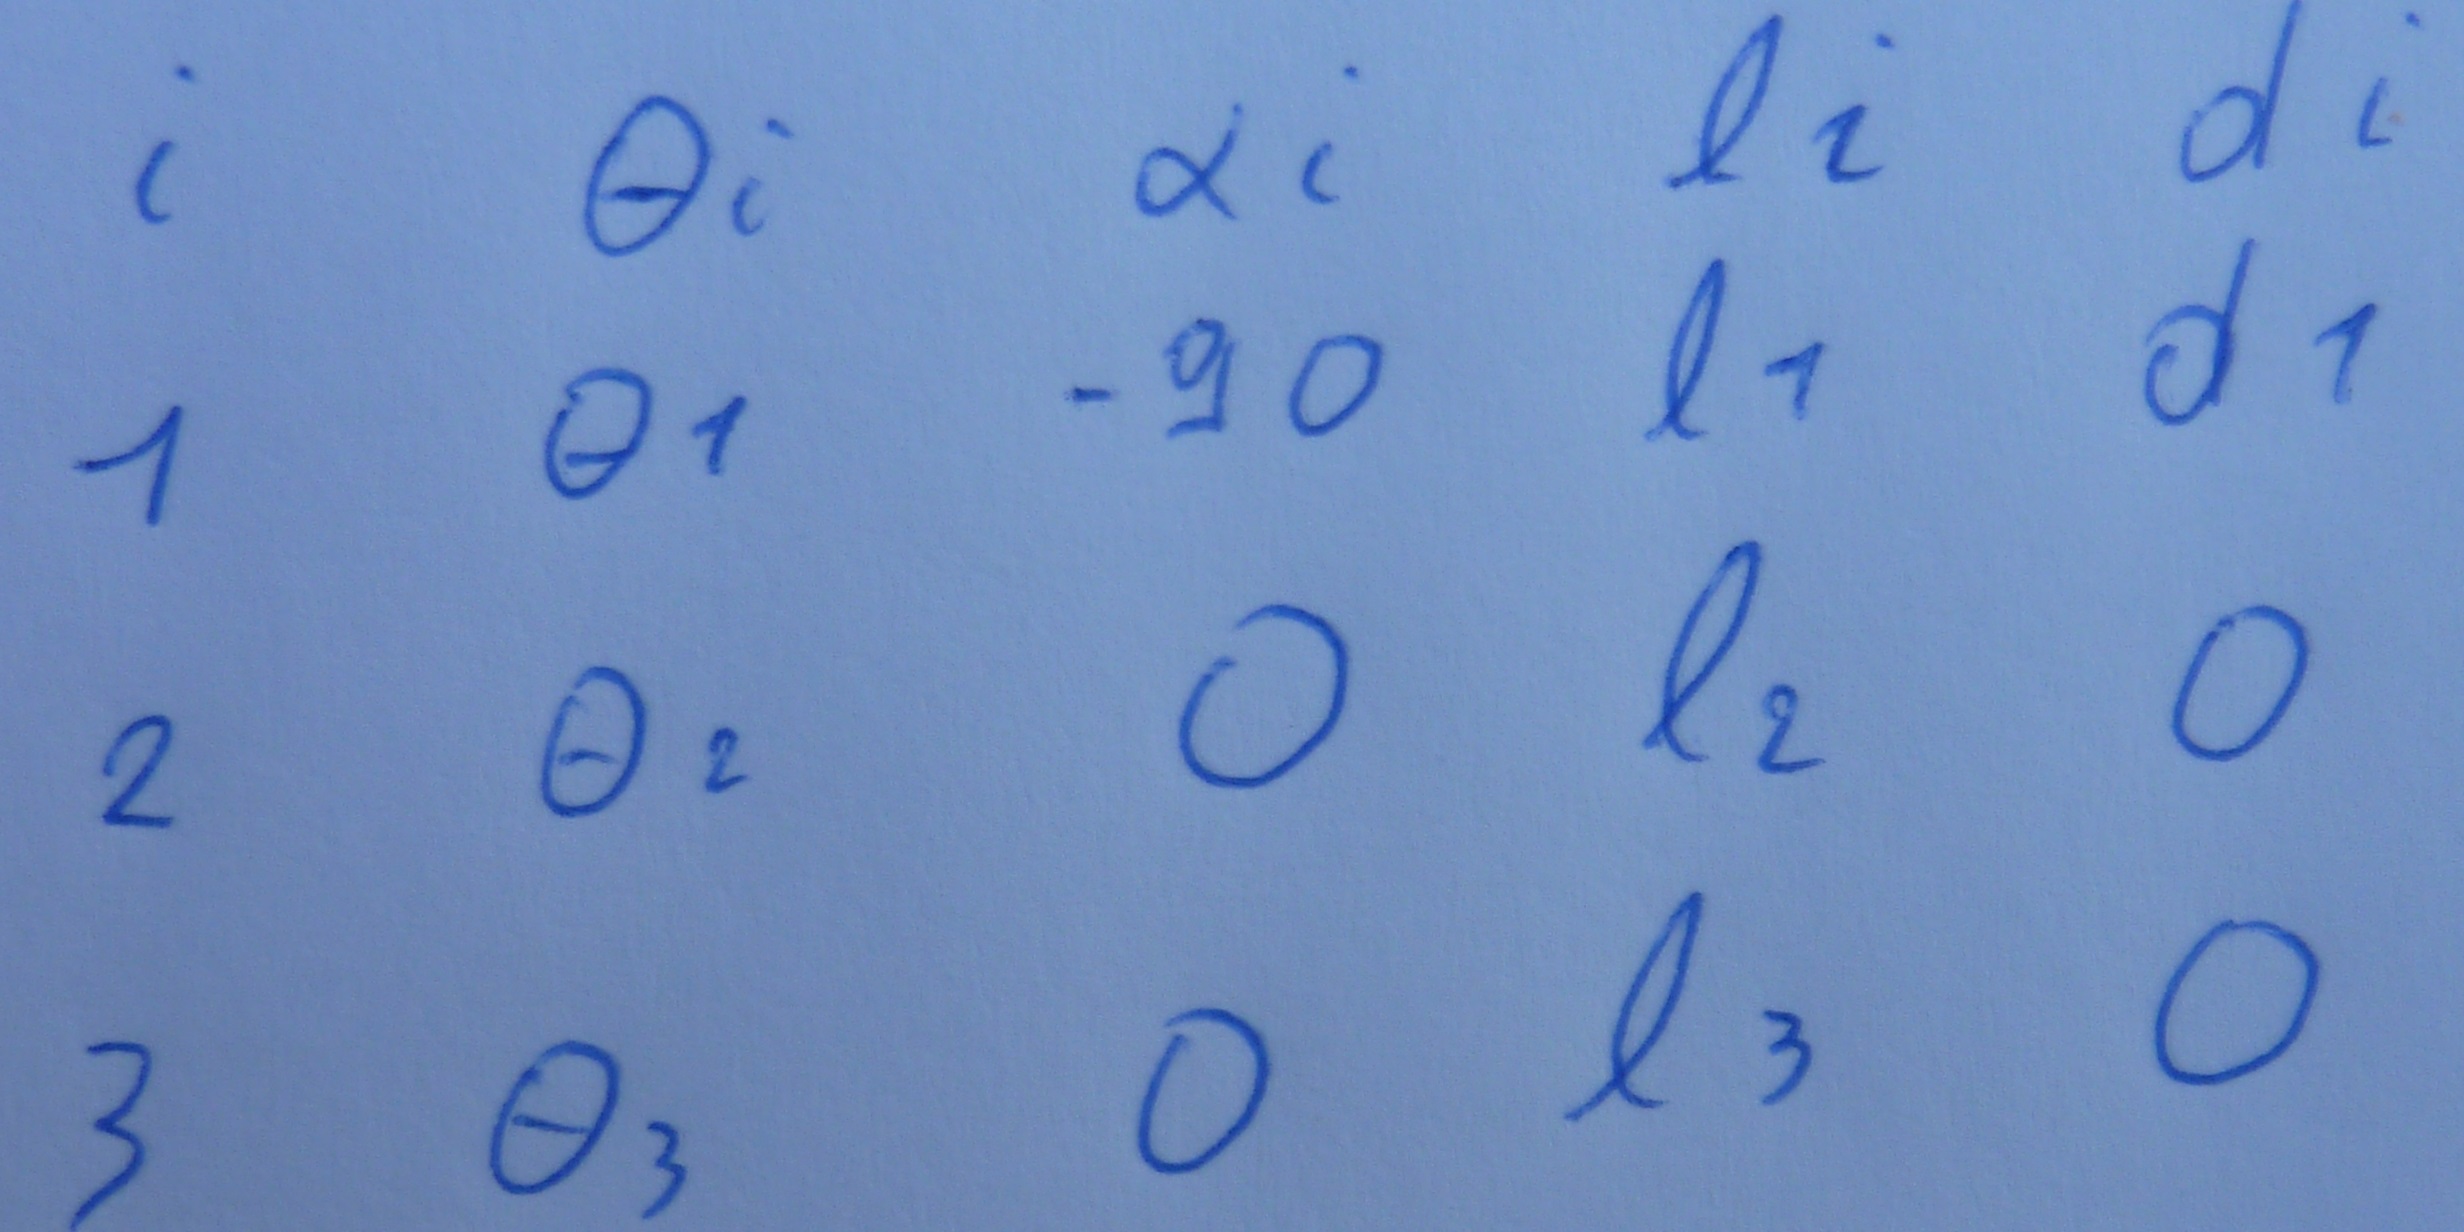 i θi αi li di
1 θ1 -90 l1 d1
2 θ2 0 l2 0
3 θ3 0 l3 0